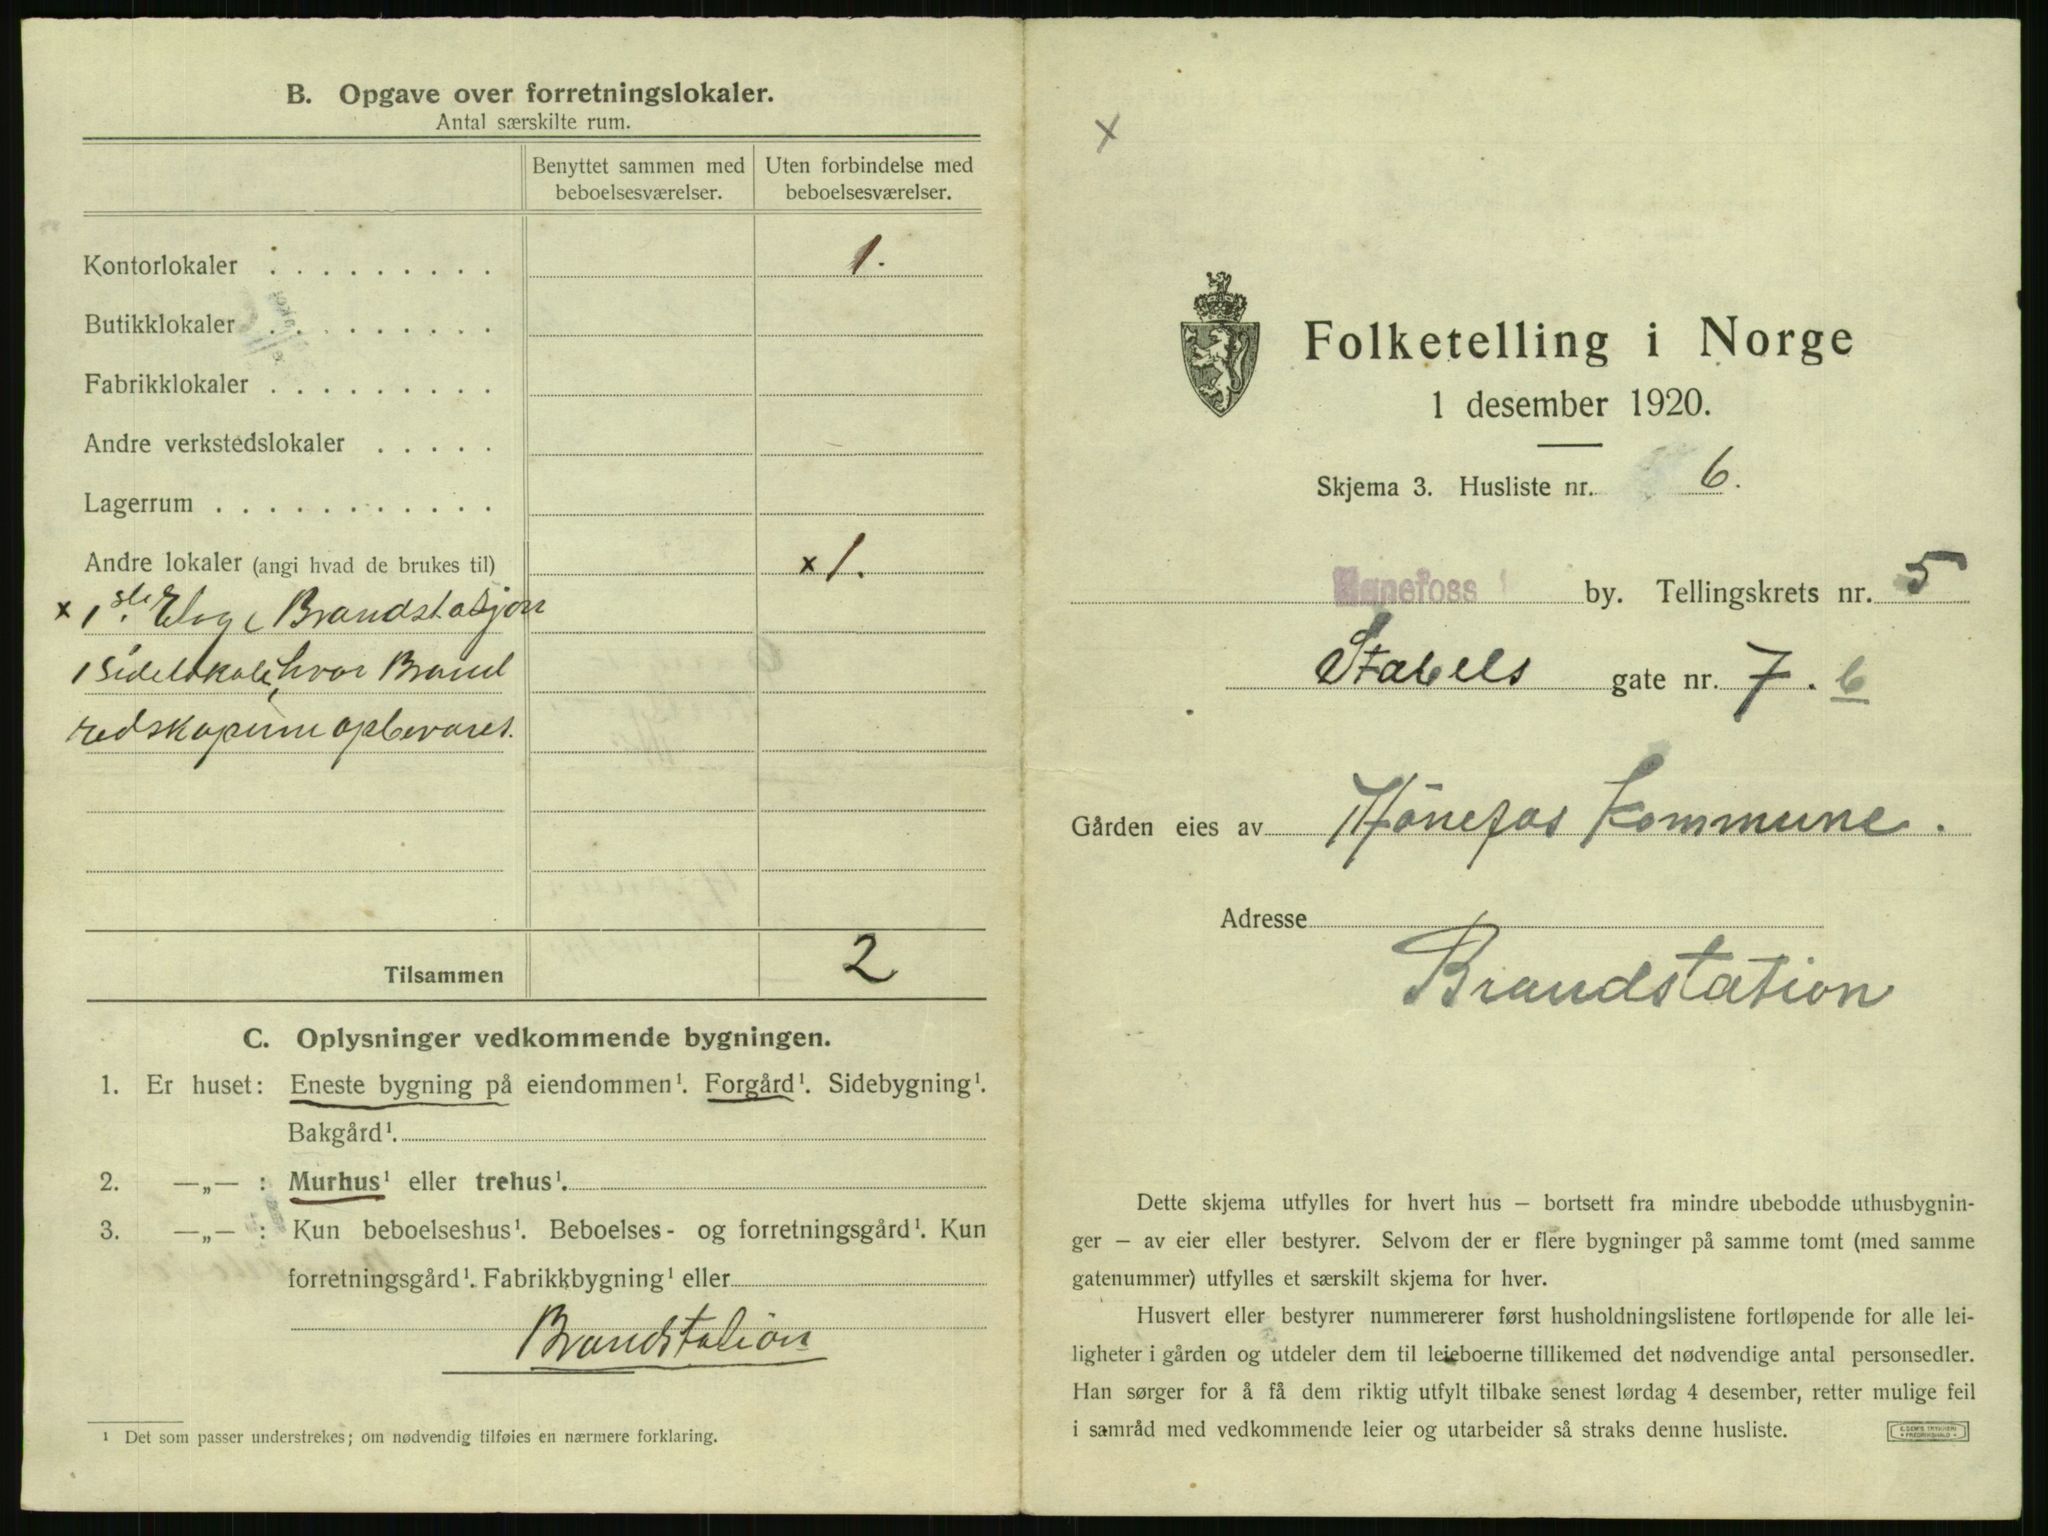 B. Opgave over forretningslokaler.
Antal særskilte rum.
Benyttet sammen med beboelsesværelser.
Uten forbindelse med beboelsesværelser.
Kontorlokaler . . . . . . . . . 1.
Butikklokaler . . . . . . . . .
Fabrikklokaler . . . . . . . . .
Andre verkstedslokaler . . . . .
Lagerrum . . . . . . . . . . . .
Andre lokaler (angi hvad de brukes til) x 1.
x 1ste Etage Brandstasjon
1 Sidelokale, hvor Brand
redskaperne opbevares.
Tilsammen 2
C. Oplysninger vedkommende bygningen.
1. Er huset: Eneste bygning på eiendommen¹. Forgård¹. Sidebygning¹.
Bakgård¹.
2. —„— : Murhus¹ eller trehus¹.
3. —„— : Kun beboelseshus¹. Beboelses- og forretningsgård¹. Kun
forretningsgård¹. Fabrikkbygning¹ eller
Brandstation
¹ Det som passer understrekes; om nødvendig tilføies en nærmere forklaring.
x
Folketelling i Norge
1 desember 1920.
Skjema 3. Husliste nr. 6.
Hønefoss by. Tellingskrets nr. 5
Stabells gate nr. 7. b
Gården eies av Hönefos Kommune.
Adresse
Brandstation
Dette skjema utfylles for hvert hus — bortsett fra mindre ubebodde uthusbygnin-
ger — av eier eller bestyrer. Selvom der er flere bygninger på samme tomt (med samme
gatenummer) utfylles et særskilt skjema for hver.
Husvert eller bestyrer nummererer først husholdningslistene fortløpende for alle lei-
ligheter i gården og utdeler dem til leieboerne tillikemed det nødvendige antal personsedler.
Han sørger for å få dem riktig utfylt tilbake senest lørdag 4 desember, retter mulige feil
i samråd med vedkommende leier og utarbeider så straks denne husliste.
E. SEM'S TRYKKERI
• FREDRIKSHALD •